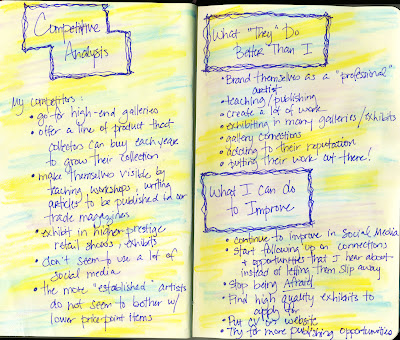 Competitive
Analysis
My competitors:
• go for high-end galleries
• offer a line of product that
collectors can buy each year
to grow their collection
• make themselves visible by
teaching workshops, writing
articles to be published in our
trade magazines
• exhibit in higher prestige
retail shows, exhibits
• don't seem to use a lot of
social media
• the more "established" artists
do not seem to bother w/
lower price point items
What "They" Do
Better Than I
• Brand themselves as a "professional"
artist
• teaching/publishing
• create a lot of work
• exhibiting in many galleries/exhibits
• gallery connections
• adding to their reputation
• putting their work out there!
What I Can do
to Improve
• continue to improve in Social Media
• Start following up on connections
+ opportunities that I hear about
instead of letting them slip away
• Stop being Afraid
• Find high quality exhibits to
apply for
• Put CV on website
• Try for more publishing opportunities